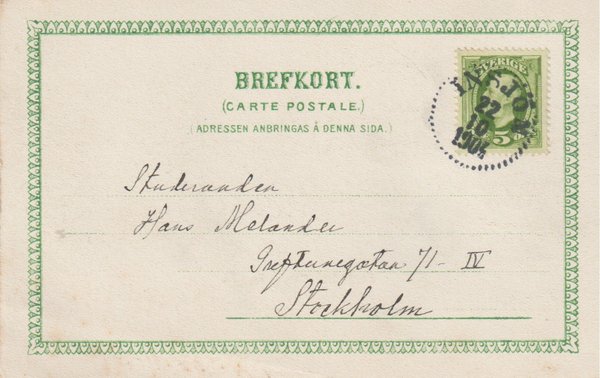 BREFKORT.
(CARTE POSTALE.)
(ADRESSEN ANBRINGAS Å DENNA SIDA.)
SVERIGE
5
INSJÖN
22
10
1904
Studeranden
Hans Melander
Greftunegatan 71 - IV
Stockholm